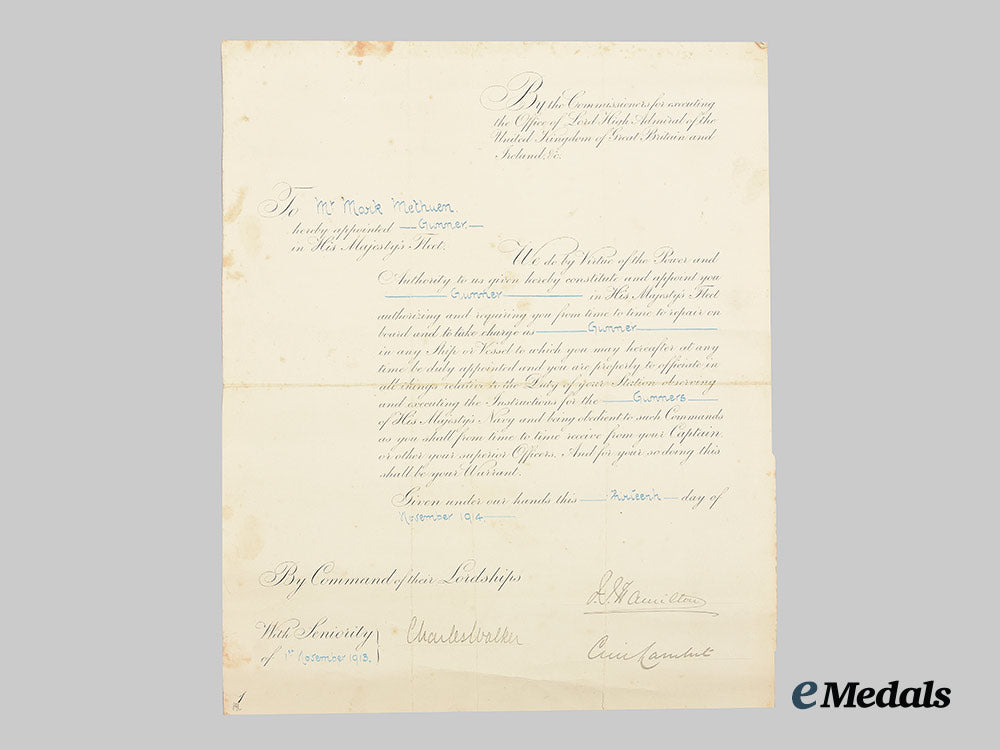 By the Commissioners for executing
the Office of Lord High Admiral of the
United Kingdom of Great Britain and
Ireland, &c.
To Mr Mark Methuen.
hereby appointed Gunner
in His Majesty's Fleet.
We do by Virtue of the Power and
Authority to us given hereby constitute and appoint you
Gunner in His Majesty's Fleet
authorizing and requiring you from time to time to repair on
board and to take charge as Gunner
in any Ship or Vessel to which you may hereafter at any
time be duly appointed and you are properly to officiate in
all things relative to the Duty of your Station observing
and executing the Instructions for the Gunners
of His Majesty's Navy and being obedient to such Commands
as you shall from time to time receive from your Captain
or other your superior Officers. And for your so doing this
shall be your Warrant.
Given under our hands this day of
November 1914.
By Command of their Lordships
F.T. Hamilton
With Seniority
of 1st November 1913.
Charles Walker
Cecil Lambert
eMedals